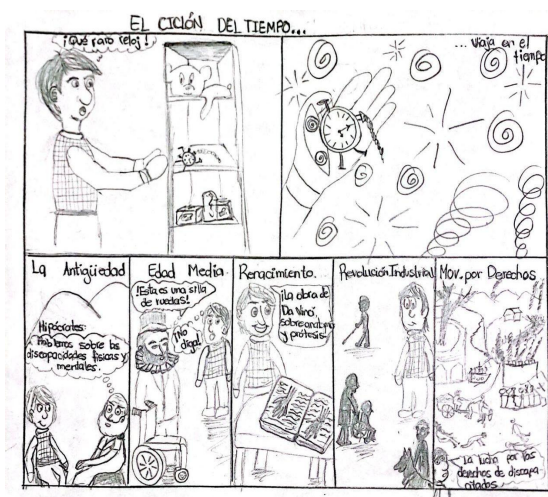 EL CICLÓN DEL TIEMPO...
¡Qué raro reloj!
... Viaja en el
tiempo
La Antigüedad
Hipócrates:
Hablemos sobre las
discapacidades físicas y
mentales.
Edad Media.
¡Esta es una silla
de ruedas!
¡No
diga!
Renacimiento...
¡La obra de
Da Vinci
sobre anatomía
y prótesis!
Revolución Industrial
Mov. por Derechos
La lucha por los
derechos de discapa
citados